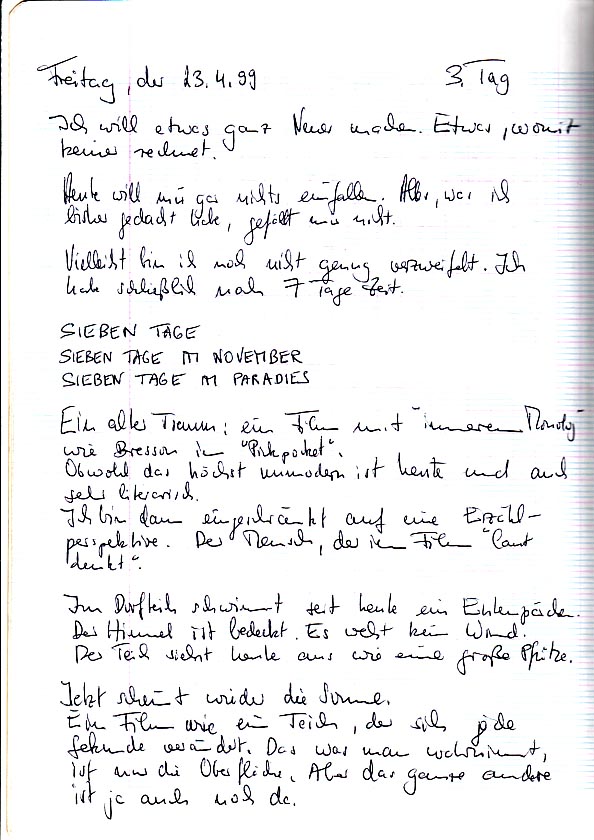 Freitag, der 23.4.99 3. Tag
Ich will etwas ganz Neues machen. Etwas, womit
keiner rechnet.
Heute will mir gar nichts einfallen. Alles, was ich
bisher gedacht habe, gefällt mir nicht.
Vielleicht bin ich noch nicht genug verzweifelt. Ich
habe schließlich noch 7 Tage Zeit.
SIEBEN TAGE
SIEBEN TAGE IM NOVEMBER
SIEBEN TAGE IM PARADIES
Ein alter Traum: ein Film mit "innerem Monolog"
wie Bresson in "Pickpocket".
Obwohl das höchst unmodern ist heute und auch
sehr literarisch.
Ich bin dann eingeschränkt auf eine Erzähl-
perspektive. Der Mensch, der im Film "laut
denkt".
Im Dorfteich schwimmt seit heute ein Entenpärchen.
Der Himmel ist bedeckt. Es weht kein Wind.
Der Teich sieht heute aus wie eine große Pfütze.
Jetzt scheint wieder die Sonne.
Ein Film wie ein Teich, der sich jede
Sekunde verändert. Das was man wahrnimmt,
ist nur die Oberfläche. Aber das ganze andere
ist ja auch noch da.